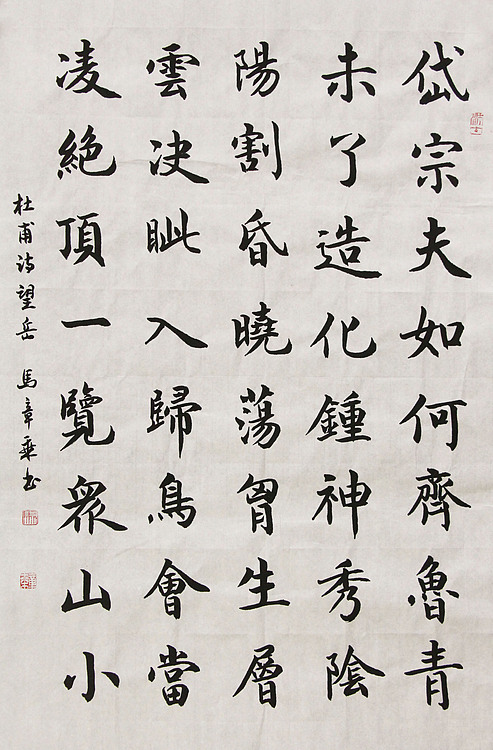 岱宗夫如何齊魯青
未了造化鍾神秀陰
陽割昏曉蕩胷生層
雲决眦入歸鳥會當
凌絶頂一覽眾山小
杜甫詩望岳 馬章乘書